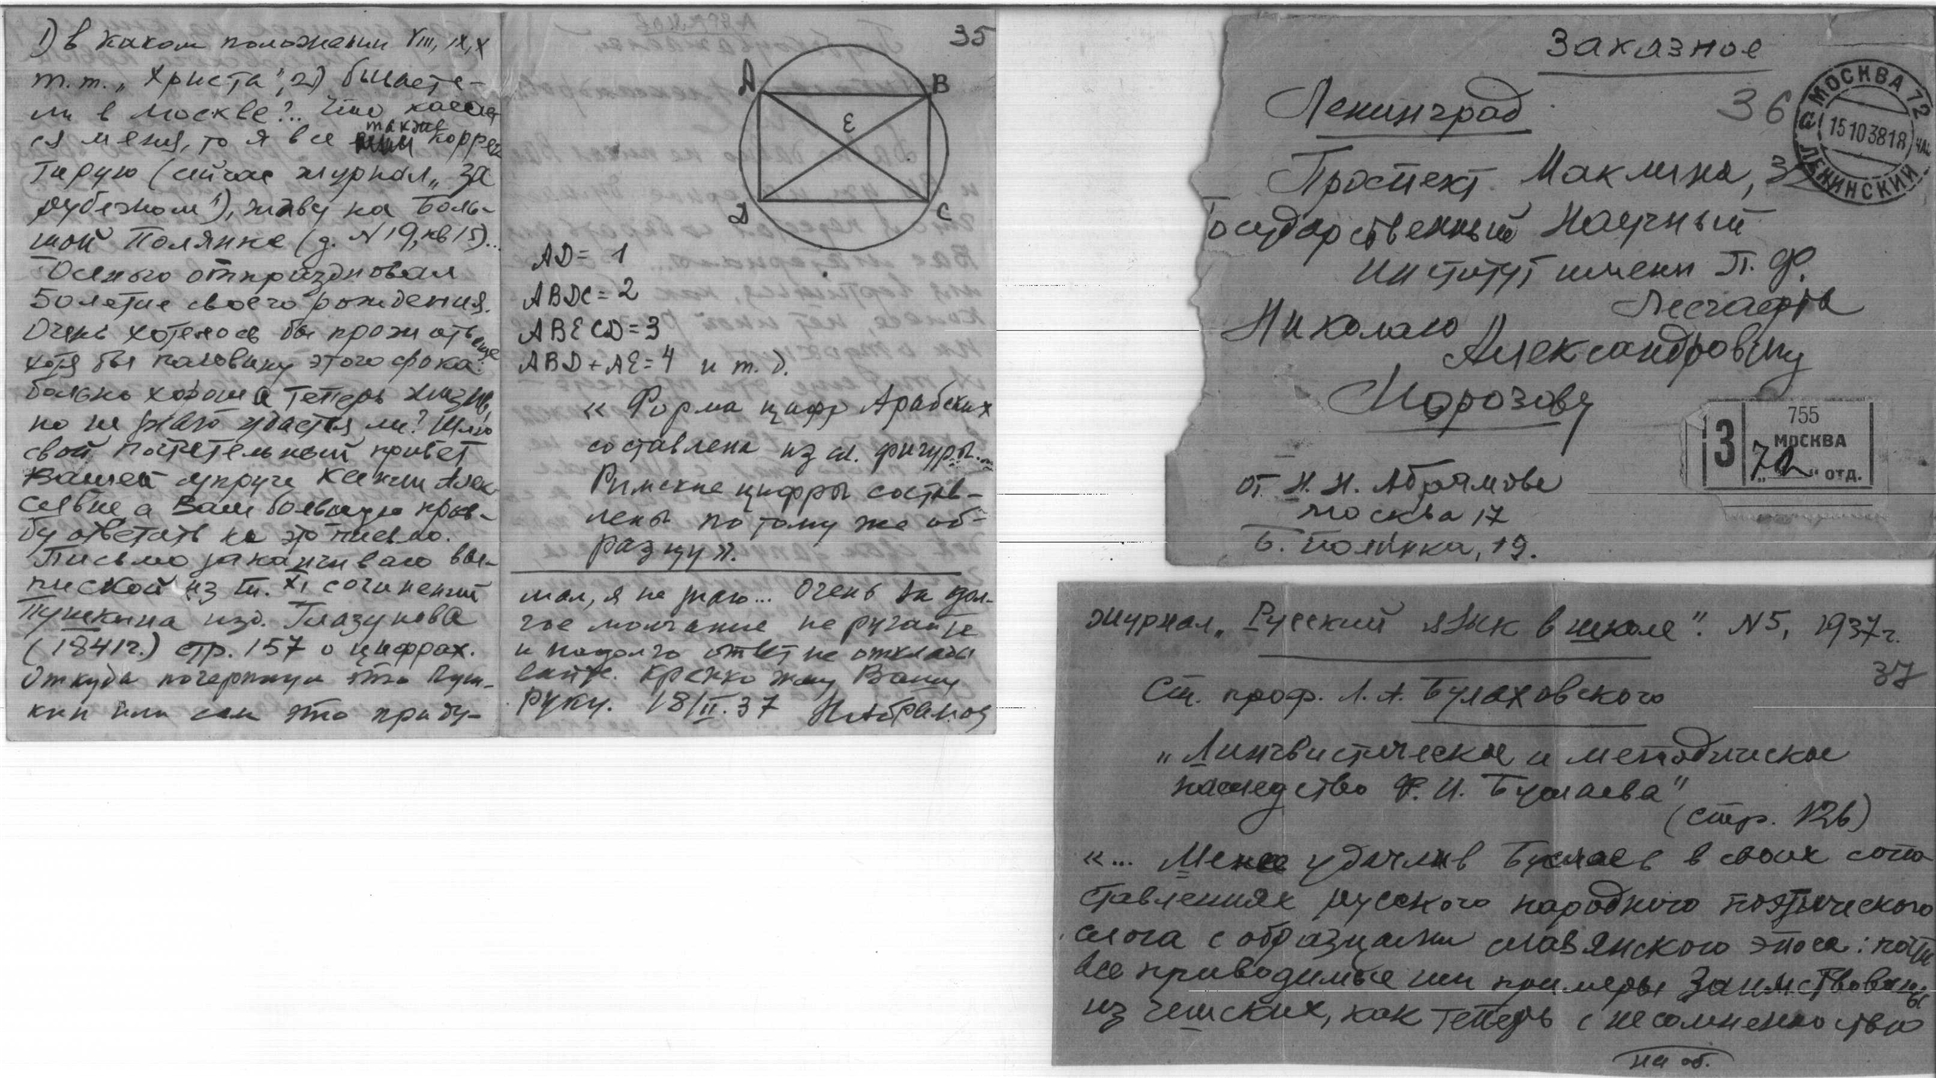 1) в каком положении VIII, IX, X
т.т. „Христа“, 2) бываете-
ли в Москве?.. Что касает
ся меня, то я все также коррек
тирую (сейчас журнал „За
рубежом“), живу на Боль-
шой Полянке (д. N 19, кв 15)...
Осенью отпраздновал
50 летие своего рождения.
Очень хотелось бы прожить еще
хотя бы половину этого срока:
больно хороша теперь жизнь,
но не знаю удастся ли? Шлю
свой почтительный привет
Вашей супруге Ксении Алек-
сеевне а Вас большую прось-
бу ответить на это письмо.
Письмо заканчиваю вы-
пиской из т. XI сочинений
Пушкина изд. Глазунова
(1841г.) стр. 157 о цифрах.
Откуда почерпнул это Пуш-
кин или сам это приду-
35
A
B
E
D
C
AD = 1
ABDC = 2
ABECD = 3
ABD + AE = 4 и т. д.
« Форма цифр Арабских
составлена из сл. фигуры...
Римские цифры состав-
лены по тому же об-
разцу».
мал, я не знаю... Очень за дол-
гое молчание не ругайте
и надолго ответ не отклады
вайте. Крепко жму Вашу
руку. 18/II.37 Н.Абрамов
Заказное
36
МОСКВА 72
15 10 38 18
ЛЕНИНСКИЙ
Ленинград
Проспект Маклина, 32
Государственный Научный
институт имени П. Ф.
Лесгафта
Николаю
Александровичу
Морозову
З
755
МОСКВА
„72“ отд.
от Н. Н. Абрамова
Москва 17
Б. Полянка, 19.
Журнал „Русский язык в школе“. N 5, 1937 г.
37
Ст. проф. Л. А. Булаховского
„Лингвистическое и методическое
наследство Ф. И. Буслаева“
(стр. 126)
«... Менее удачлив Буслаев в своих сопо
ставлениях русского народного поэтического
слога с образцами славянского эпоса: почти
все приводимые им примеры заимствованы
из чешских, как теперь с несомненностью
на об.